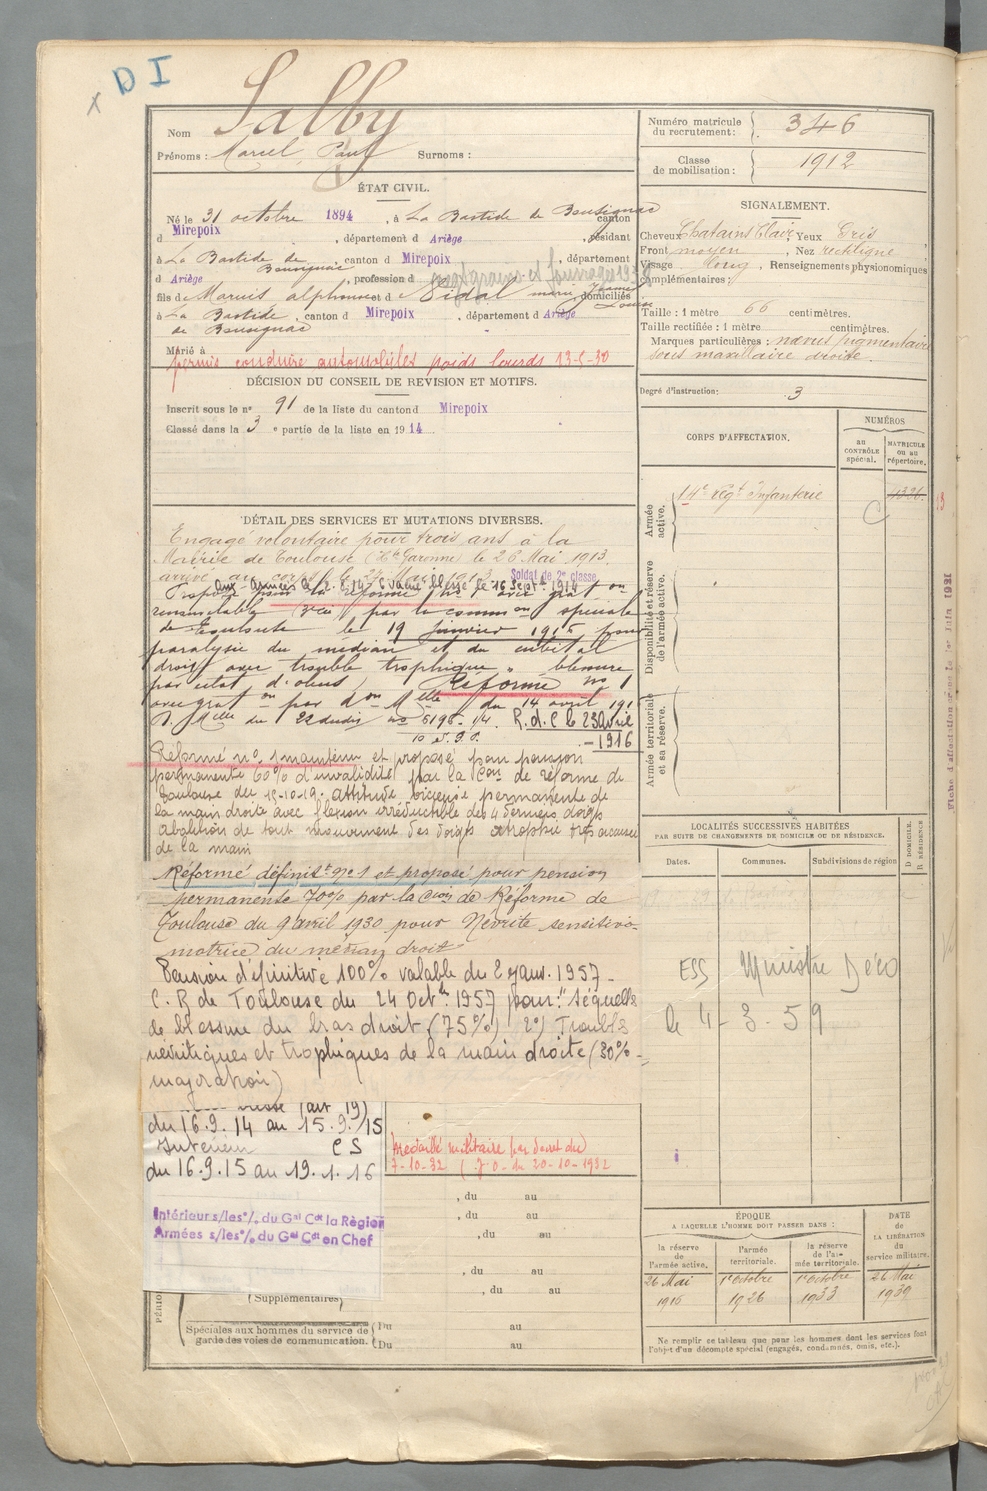 D I
Nom Salby
Prénoms : Marcel, Paul Surnoms :
ÉTAT CIVIL.
Né le 31 octobre 1894, à La Bastide de Bousignac canton
d Mirepoix, département d Ariège, résidant
à La Bastide de Bousignac, canton d Mirepoix, département
d Ariège, profession d
fils de Marius alphonse et d Vidal marie Jeanne Louise, domiciliés
à La Bastide de Bousignac, canton d Mirepoix, département d Ariège
Marié à
permis conduire automobiles poids lourds 13-5-30
DÉCISION DU CONSEIL DE REVISION ET MOTIFS.
Inscrit sous le n° 91 de la liste du canton d Mirepoix
Classé dans la 3e partie de la liste en 1914
DÉTAIL DES SERVICES ET MUTATIONS DIVERSES.
Engagé volontaire pour trois ans à la
Mairie de Toulouse (Hte Garonne) le 26 Mai 1913
arrivé au corps le 27 Mai 1913 Soldat de 2e classe
aux armées blessé le 16 Septe 1914
Proposé pour la réforme n° 1 avec grat on
renouvelable par la comm on spéciale
de Toulouse le 19 janvier 1916 pour
paralysie du médian et du cubital
droit avec trouble trophique. blessure
par éclat d'obus, Réformé n° 1
avec grat on par d on Melle du 14 avril 1916
D. Melle du 22 dudit n° 5196-1/4 R.d.C le 23 avril
-1916
Réformé n° 1 maintenu et proposé pour pension
permanente 60% d'invalidité par la Con de réforme de
Toulouse du 15-10-19. attitude vicieuse permanente de
la main droite avec flexion irréductible des 4 derniers doigts
abolition de tout mouvement des doigts atrophie très accusée
de la main
Réformé définitt n° 1 et proposé pour pension
permanente 70% par la Con de Réforme de
Toulouse du 9 avril 1930 pour Névrite sensitivo-
motrice du médian droit
Pension définitive 100% valable du 2 janv. 1957 -
C. R de Toulouse du 24 Octbre 1957 pour : séquelles
de blessure du bras droit (75%) 2°) Troubles
névritiques et trophiques de la main droite (30% -
majoration)
(art 19)
du 16.9.14 au 15.9./15
Intérieur CS
du 16.9.15 au 19.1.16
Médaille militaire par décret du
7-10-32 (J.O. du 20-10-1932
Intérieur s/les°/. du Gal Cdt la Région
Armées s/les°/. du Gal Cdt en Chef
, du au
, du au
, du au
, du au
, du au
(Supplémentaires)
Spéciales aux hommes du service de garde des voies de communication.
Du au
Du au
Numéro matricule du recrutement : 346
Classe de mobilisation : 1912
SIGNALEMENT.
Cheveux Chatains Clair, Yeux Gris
Front moyen, Nez rectiligne
Visage long, Renseignements physionomiques
complémentaires :
Taille : 1 mètre 66 centimètres.
Taille rectifiée : 1 mètre centimètres.
Marques particulières : nævus pigmentaire
sous maxillaire droite.
Degré d'instruction : 3
CORPS D'AFFECTATION.
NUMÉROS
au CONTRÔLE spécial.
MATRICULE ou au répertoire.
Armée active.
14e Régt Infanterie
C
Disponibilité et réserve de l'armée active.
Armée territoriale et sa réserve.
LOCALITÉS SUCCESSIVES HABITÉES
PAR SUITE DE CHANGEMENTS DE DOMICILE OU DE RÉSIDENCE.
D DOMICILE.
R RÉSIDENCE
Dates. Communes. Subdivisions de région
ESS Ministre Déco
le 4-3.59
ÉPOQUE
A LAQUELLE L'HOMME DOIT PASSER DANS :
DATE de LA LIBÉRATION du service militaire.
la réserve de l'armée active. l'armée territoriale. la réserve de l'armée territoriale.
26 Mai 1916 1er Octobre 1926 1er Octobre 1933 26 Mai 1939
Ne remplir ce tableau que pour les hommes dont les services font
l'objet d'un décompte spécial (engagés, condamnés, omis, etc.).